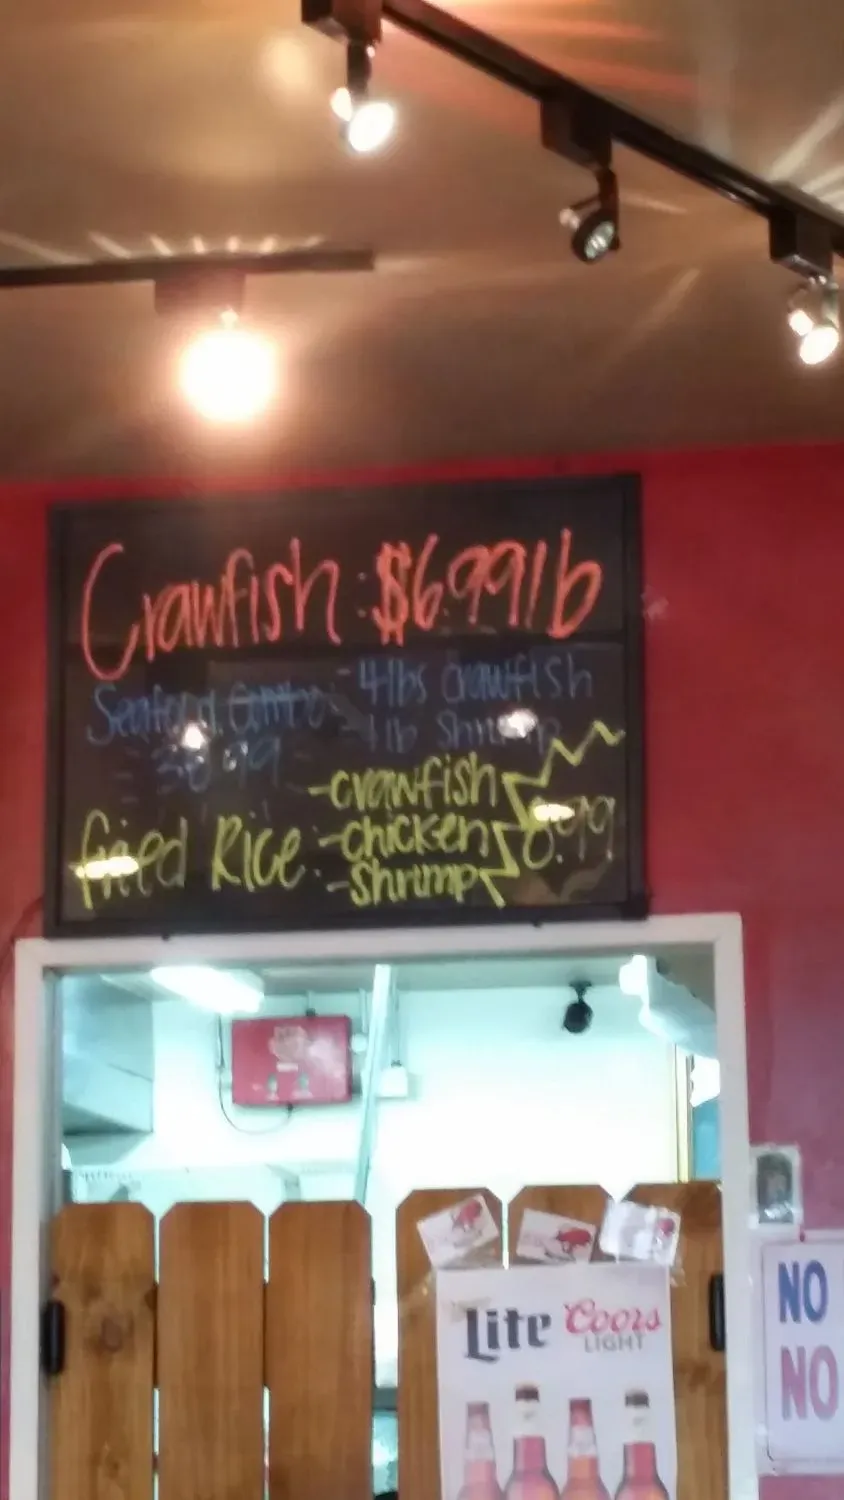 Crawfish : $6.99 lb
Seafood Combo : - 4 lbs crawfish
- 1 lb shrimp
38.99
Fried Rice : - crawfish
- chicken 8.99
- shrimp
Lite Coors
LIGHT
NO
NO